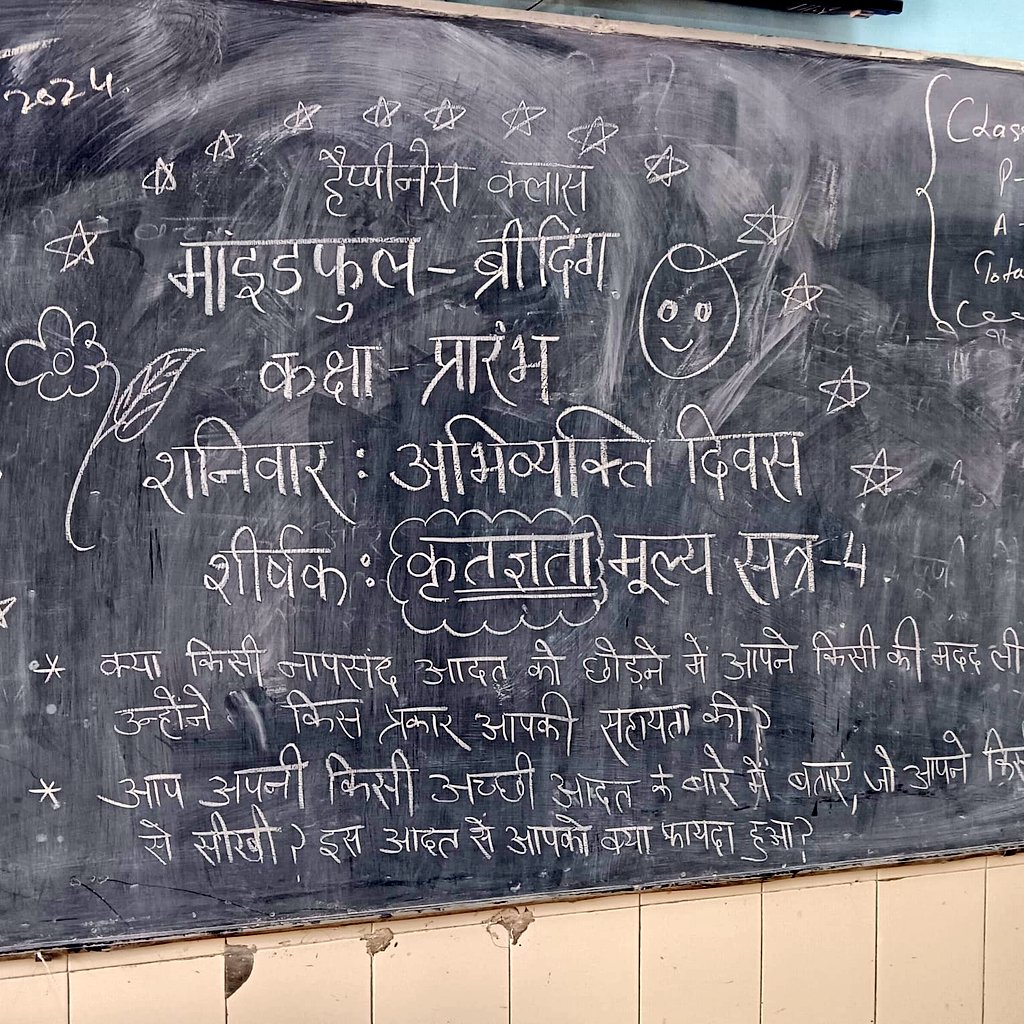 2024.
हैप्पीनेस क्लास
मांइडफुल - ब्रीदिंग
कक्षा - प्रारंभ
शनिवार : अभिव्यक्ति दिवस
शीर्षक : कृतज्ञता मूल्य सत्र - 4.
* क्या किसी नापसंद आदत को छोड़ने में आपने किसी की मदद ली
उन्होंने किस प्रकार आपकी सहायता की?
* आप अपनी किसी अच्छी आदत के बारे में बताएं, जो आपने
से सीखी? इस आदत से आपको क्या फायदा हुआ?
P-
A-